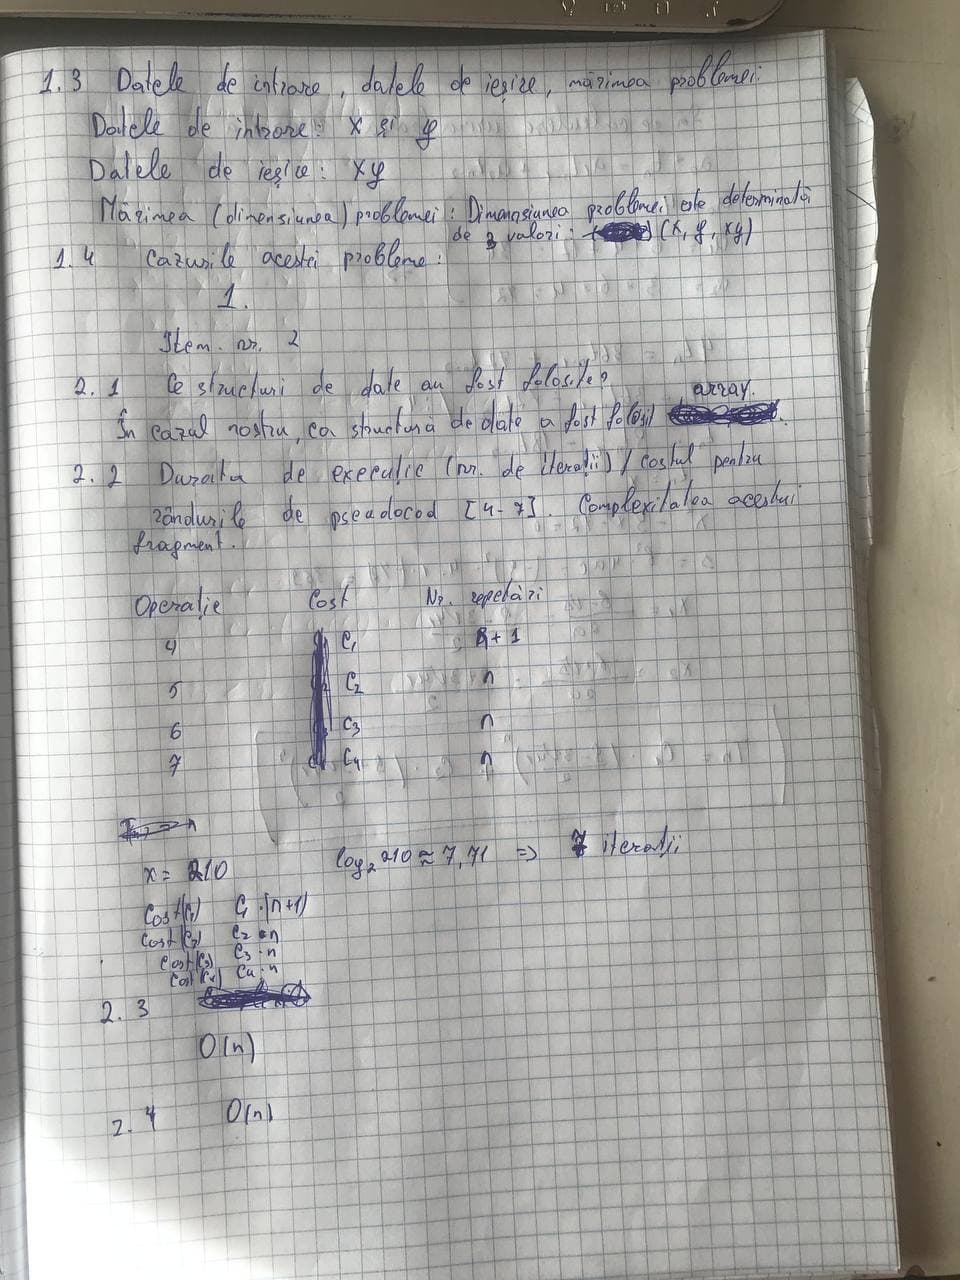 1.3 Datele de intrare, datele de ieșire, mărimea problemei.
Datele de intrare: x și y
Datele de ieșire: xy
Mărimea (dimensiunea) problemei: Dimensiunea problemei este determinată
de 3 valori: (x, y, xy)
1.4 Cazurile acestei probleme:
1.
Item. nr. 2
2.1 Ce structuri de date au fost folosite?
array.
În cazul nostru, ca structură de date a fost folosit
2.2 Durata de execuție (nr. de iterații) / costul pentru
rândurile de pseudocod [4-7]. Complexitatea acestui
fragment.
Operație Cost Nr. repetări
4 C1 n+1
5 C2 n
6 C3 n
7 C4 n
x = 210 log₂ 210 ≈ 7,71 => 7 iterații
Cost(C1) C1·(n+1)
Cost(C2) C2·n
Cost(C3) C3·n
Cost(C4) C4·n
2.3
O(n)
2.4 O(n)